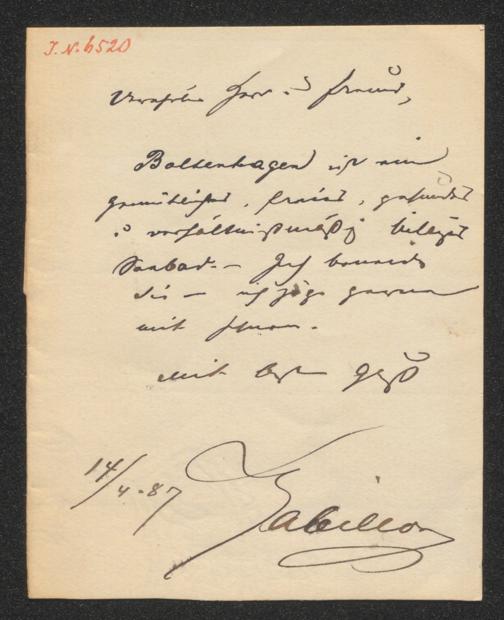 I.N. 6520
Verehrter Herr u. Freund,
Boltenhagen ist ein
gemütliches, freies, gesundes
u verhältnißmäßig billiges
Seebad. – Ich beneide
Sie – ich zöge gerne
mit Ihnen.
Mit best Gruß
14/4.87
Gabillon